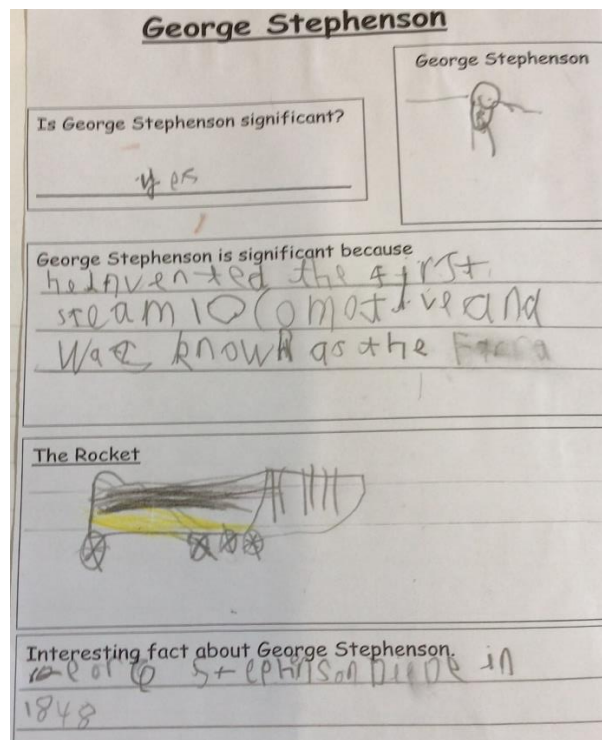 George Stephenson
George Stephenson
Is George Stephenson significant?
yes
George Stephenson is significant because
heinvented the first
steam locomotive and
was known as the
The Rocket
Interesting fact about George Stephenson.
Stephinson in
1848